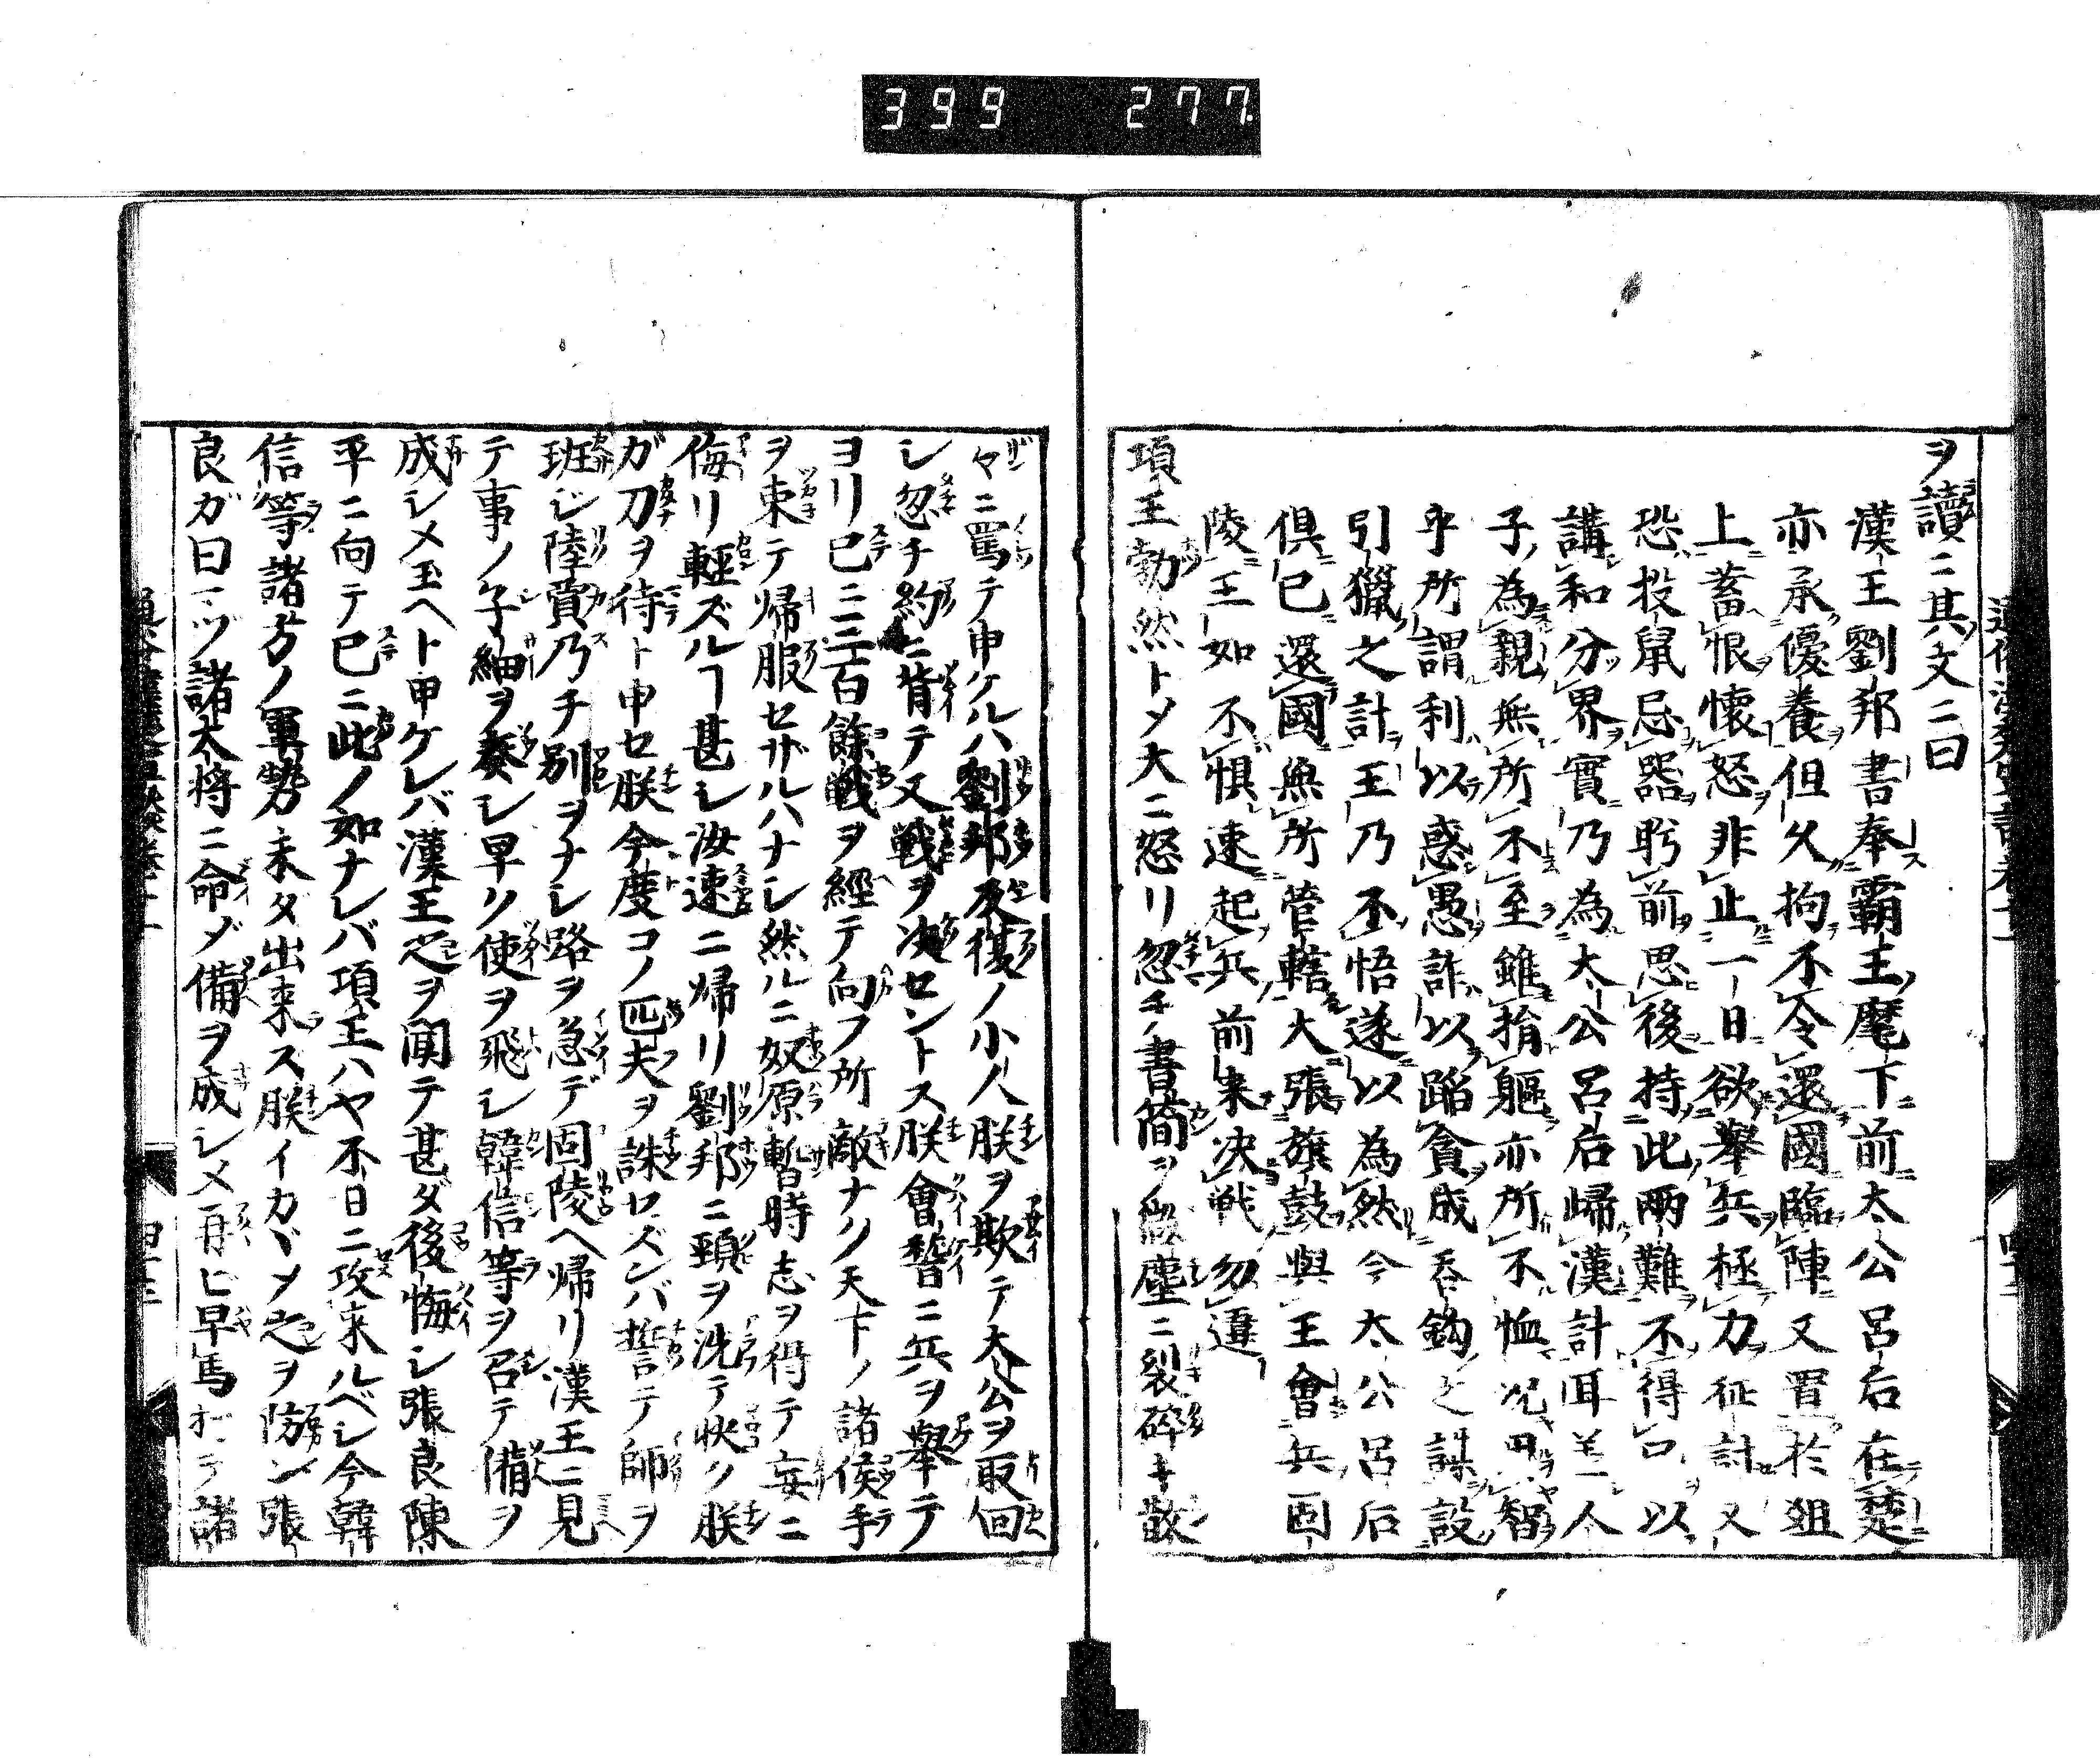 399 277
ヲ讀ニ其文ニ曰
漢王劉邦書奉霸王麾下前太公呂后在楚
亦承優養但久拘不令還國臨陣又置於俎
上蓄恨懷怒非止一日欲舉兵極力征討又
恐投鼠忌器眄前思後持此兩難不得已以
講和分界實乃為太公呂后歸漢計耳羊一人
子為親無所不至雖捐軀亦所不恤况用智
乎所謂利以惑愚詐以蹈貪成吞鈎之謀設
引獵之計王乃不悟遂以為然今太公呂后
俱已還國無所管轄大張旗鼓與王會兵固
陵王如不惧速起兵前来决戦勿違
項王勃然トメ大ニ怒リ忽チ書簡ヲ塵ニ裂碎キ散
々ニ罵テ申ケルハ劉邦反復ノ小人朕ヲ欺テ太公ヲ取回
シ忽チ約ニ背テ又戦ヲ决セントス朕會稽ニ兵ヲ舉テ
ヨリ已ニ三百餘戦ヲ經テ向フ所敵ナク天下ノ諸侯手
ヲ束テ帰服セザルハナシ然ルニ奴原暫時志ヲ得テ妄ニ
侮リ輕ズルヿ甚シ汝速ニ帰リ劉邦ニ頸ヲ洗テ快ク朕
ガ刀ヲ待ト申セ朕今度コノ匹夫ヲ誅セズンバ誓テ師ヲ
班ジ陸賈乃チ別ヲナシ路ヲ急デ固陵ヘ帰リ漢王ニ見
テ事ノ子細ヲ奏シ早ク使ヲ飛シ韓信等ヲ召テ備ヲ
成シメ玉ヘト申ケレバ漢王之ヲ聞テ甚ダ後悔シ張良陳
平ニ向テ已ニ此ノ如ナレバ項王ハヤ不日ニ攻来ルベシ今韓
信等諸方ノ軍勢未タ出来ス朕イカヾメ之ヲ防ン張
良ガ曰一ツ諸大将ニ命ダ備ヲ成シメ再ヒ早馬ヲ諸